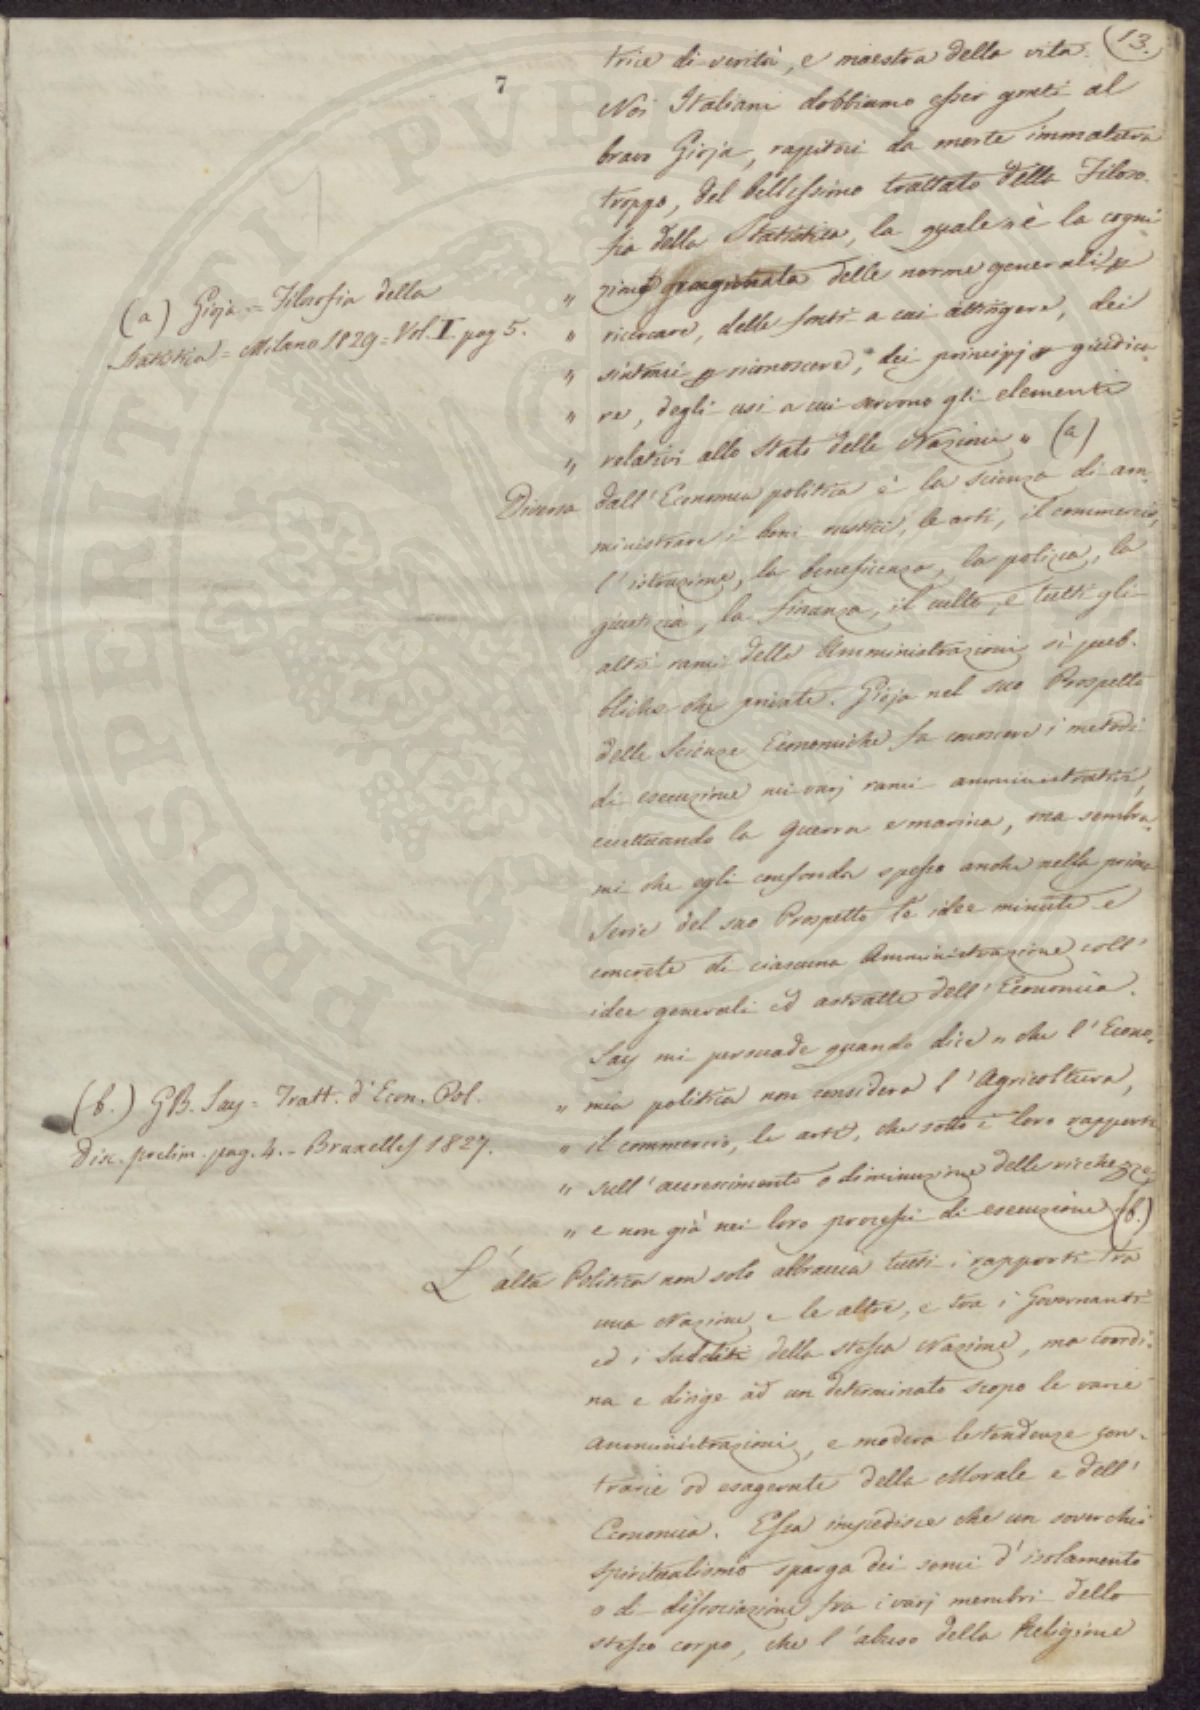 13.
7
trice di verità, e maestra della vita.
Noi Italiani dobbiamo esser grati al
bravo Gioja, rapitoci da morte immatura
troppo, del bellissimo trattato della Filoso-
fia della Statistica, la quale " è la cogni-
" zione ragionata delle norme generali p
" ricercare, delle fonti a cui attingere, dei
" sintomi p riconoscere, dei principj p giudica-
" re, degli usi a cui servono gli elementi
" relativi allo stato delle Nazioni " (a)
(a) Gioja = Filosofia della
Statistica = Milano 1829 = Vol. I. pag 5.
Diversa dall'Economia politica è la scienza di am-
ministrare i beni rustici, le arti, il commercio,
l'istruzione, la beneficenza, la polizia, la
giustizia, la finanza, il culto, e tutti gli
altri rami delle Amministrazioni sì pub-
bliche che private. Gioja nel suo Prospetto
delle Scienze Economiche fa conoscere i metodi
di esecuzione nei varj rami amministrativi,
eccettuando la Guerra e marina, ma sembra-
mi che egli confonda spesso anche nella prima
Serie del suo Prospetto le idee minute e
concrete di ciascuna Amministrazione coll'
idee generali ed astratte dell'Economia.
Say mi persuade quando dice " che l'Econo-
" mia politica non considera l'Agricoltura,
" il commercio, le arti, che sotto i loro rapporti
" sull'accrescimento o diminuzione delle ricchezze,
" e non già nei loro processi di esecuzione (b.)
(b.) GB. Say = Tratt. d'Econ. Pol.
Disc. prelim. pag. 4. - Bruxelles 1827.
L'alta Politica non solo abbraccia tutti i rapporti tra
una Nazione e le altre, e tra i Governanti
ed i Sudditi della stessa Nazione, ma coordi-
na e dirige ad un determinato scopo le varie
Amministrazioni, e modera le tendenze con-
trarie od esagerate della Morale e dell'
Economia. Essa impedisce che un soverchio
spiritualismo sparga dei semi d'isolamento
o di dissociazione fra i varj membri dello
stesso corpo, che l'abuso della Religione